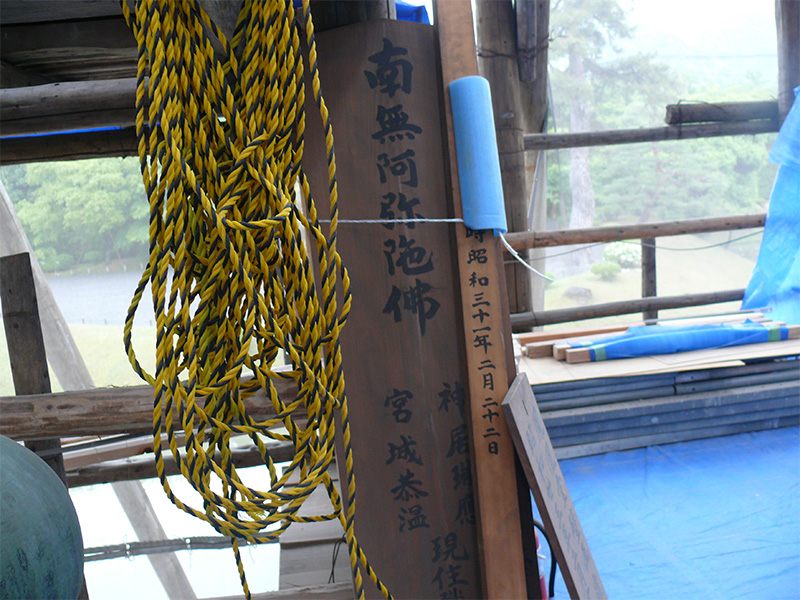 時昭和三十一年二月二十二日
南無阿弥陁佛
神居
現住
宮城恭温